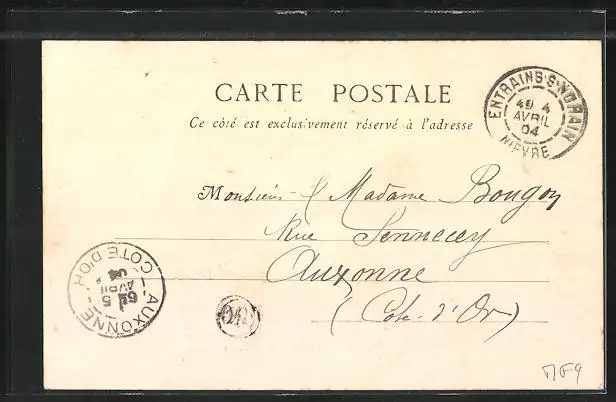 CARTE POSTALE
Ce côté est exclusivement réservé à l'adresse
ENTRAINS-S-NOHAIN
4
AVRIL
04
NIEVRE
Monsieur & Madame Bougon
Rue Sennecey
Auxonne
(Côte-d'Or)
AUXONNE
5
AVRIL
04
COTE D'OR